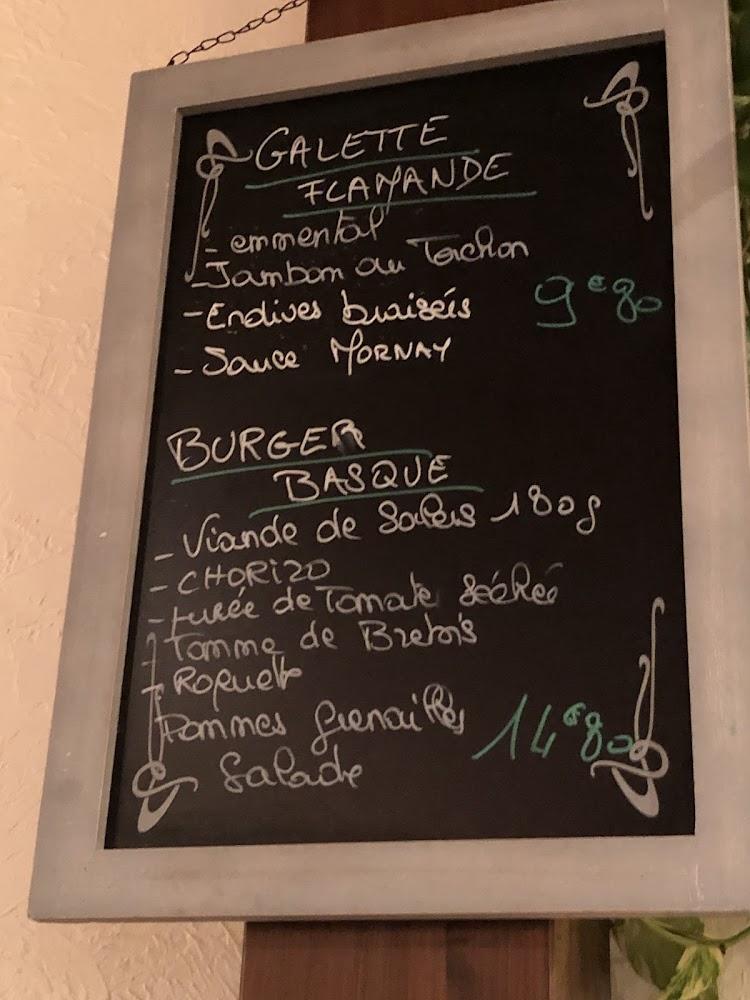 GALETTE
FLAMANDE
- emmental
- Jambon au Torchon
- Endives braisées
9€80
- Sauce MORNAY
BURGER
BASQUE
- Viande de Salers 180g
- CHORIZO
- purée de Tomate séchée
- Tomme de Brebis
- Roquette
Pommes grenailles
14€80
Salade